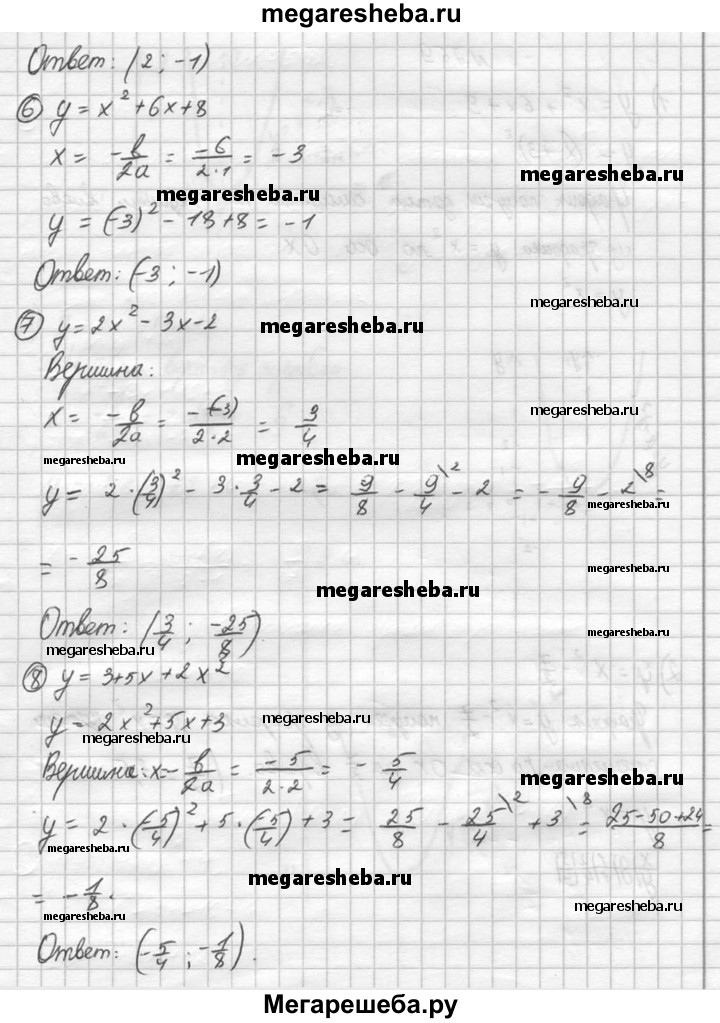 megaresheba.ru
Ответ: (2 ; -1)
⑥ y = x² + 6x + 8
x = -b/2a = -6/2·1 = -3
megaresheba.ru
megaresheba.ru
y = (-3)² - 18 + 8 = -1
Ответ: (-3 ; -1)
megaresheba.ru
⑦ y = 2x² - 3x - 2
megaresheba.ru
Вершина:
x = -b/2a = -(-3)/2·2 = 3/4
megaresheba.ru
megaresheba.ru
megaresheba.ru
y = 2·(3/4)² - 3·3/4 - 2 = 9/8 - 9/4\2 - 2 = -9/8 - 2\8 =
megaresheba.ru
= -25/8
megaresheba.ru
megaresheba.ru
Ответ: (3/4 ; -25/8).
megaresheba.ru
megaresheba.ru
⑧ y = 3+5x+2x²
y = 2x²+5x+3
megaresheba.ru
megaresheba.ru
Вершина: x = -b/2a = -5/2·2 = -5/4
megaresheba.ru
y = 2·(-5/4)² + 5·(-5/4) + 3 = 25/8 - 25/4\2 + 3\8 = 25-50+24/8 =
megaresheba.ru
megaresheba.ru
= -1/8.
megaresheba.ru
megaresheba.ru
Ответ: (-5/4 ; -1/8).
megaresheba.ru
Мегарешеба.ру